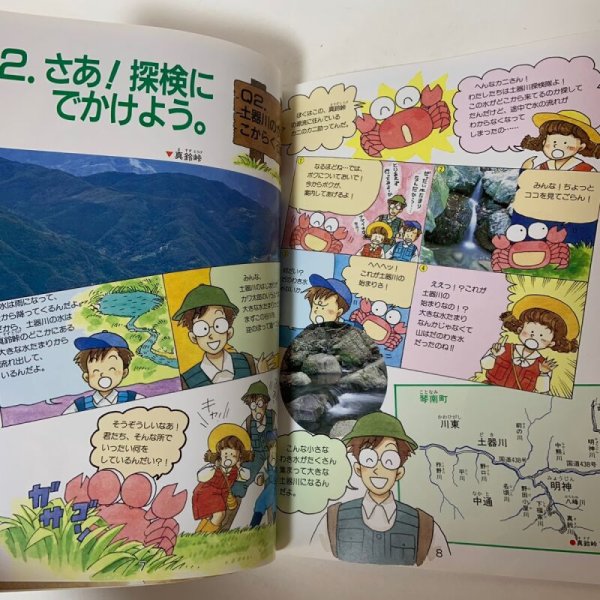 2. さあ!探検に
でかけよう。
Q2.
土器川の
こからく
▼真鈴峠
水は雨になって、
から降ってくるんだよ。
から、土器川の水は
真鈴峠のどこかにある
大きな水たまりから
流れ出して、
いるんだよ。
みんな、
土器川のはじ
ガワ太郎の
大きな水たまり
まずこの谷川
登って
そうぞうしいなあ!
君たち、そんな所で
いったい何を
しているんだい?!
ガサゴソ
7
ぼくはこの、真鈴峠
の源流に住んでいる
カニのカニ助ってんだ。
へんなカニさん!
わたしたちは土器川探検隊よ!
この水がどこから来てるのか探して
たんだけど、途中で水の流れが
わからなくなって
しまったの……
1
なるほどね…では、
ボクについておいで!
今からボクが、
案内してあげるよ!
2
みんな!ちょっと
ココを見てごらん!
3
へへヘッ!
これが土器川の
始まりさ!
4
ええっ!?これが
土器川の
始まりなの!?
大きな水たまり
なんかじゃなくて
山はだのわき水
だったのね!!
こんな小さな
わき水がたくさん
集まって大きな
土器川になるん
だよ。
8
ことなみ
琴南町
かわひがし
川東
どき
土器川
前の川
中熊川
明神川
国道438号
国道438号
柞野川
平川
野口川
名頃川
野田小屋川
下福家川
みょうじん
明神
八峰川
真鈴川
なかとう
中通
真鈴峠